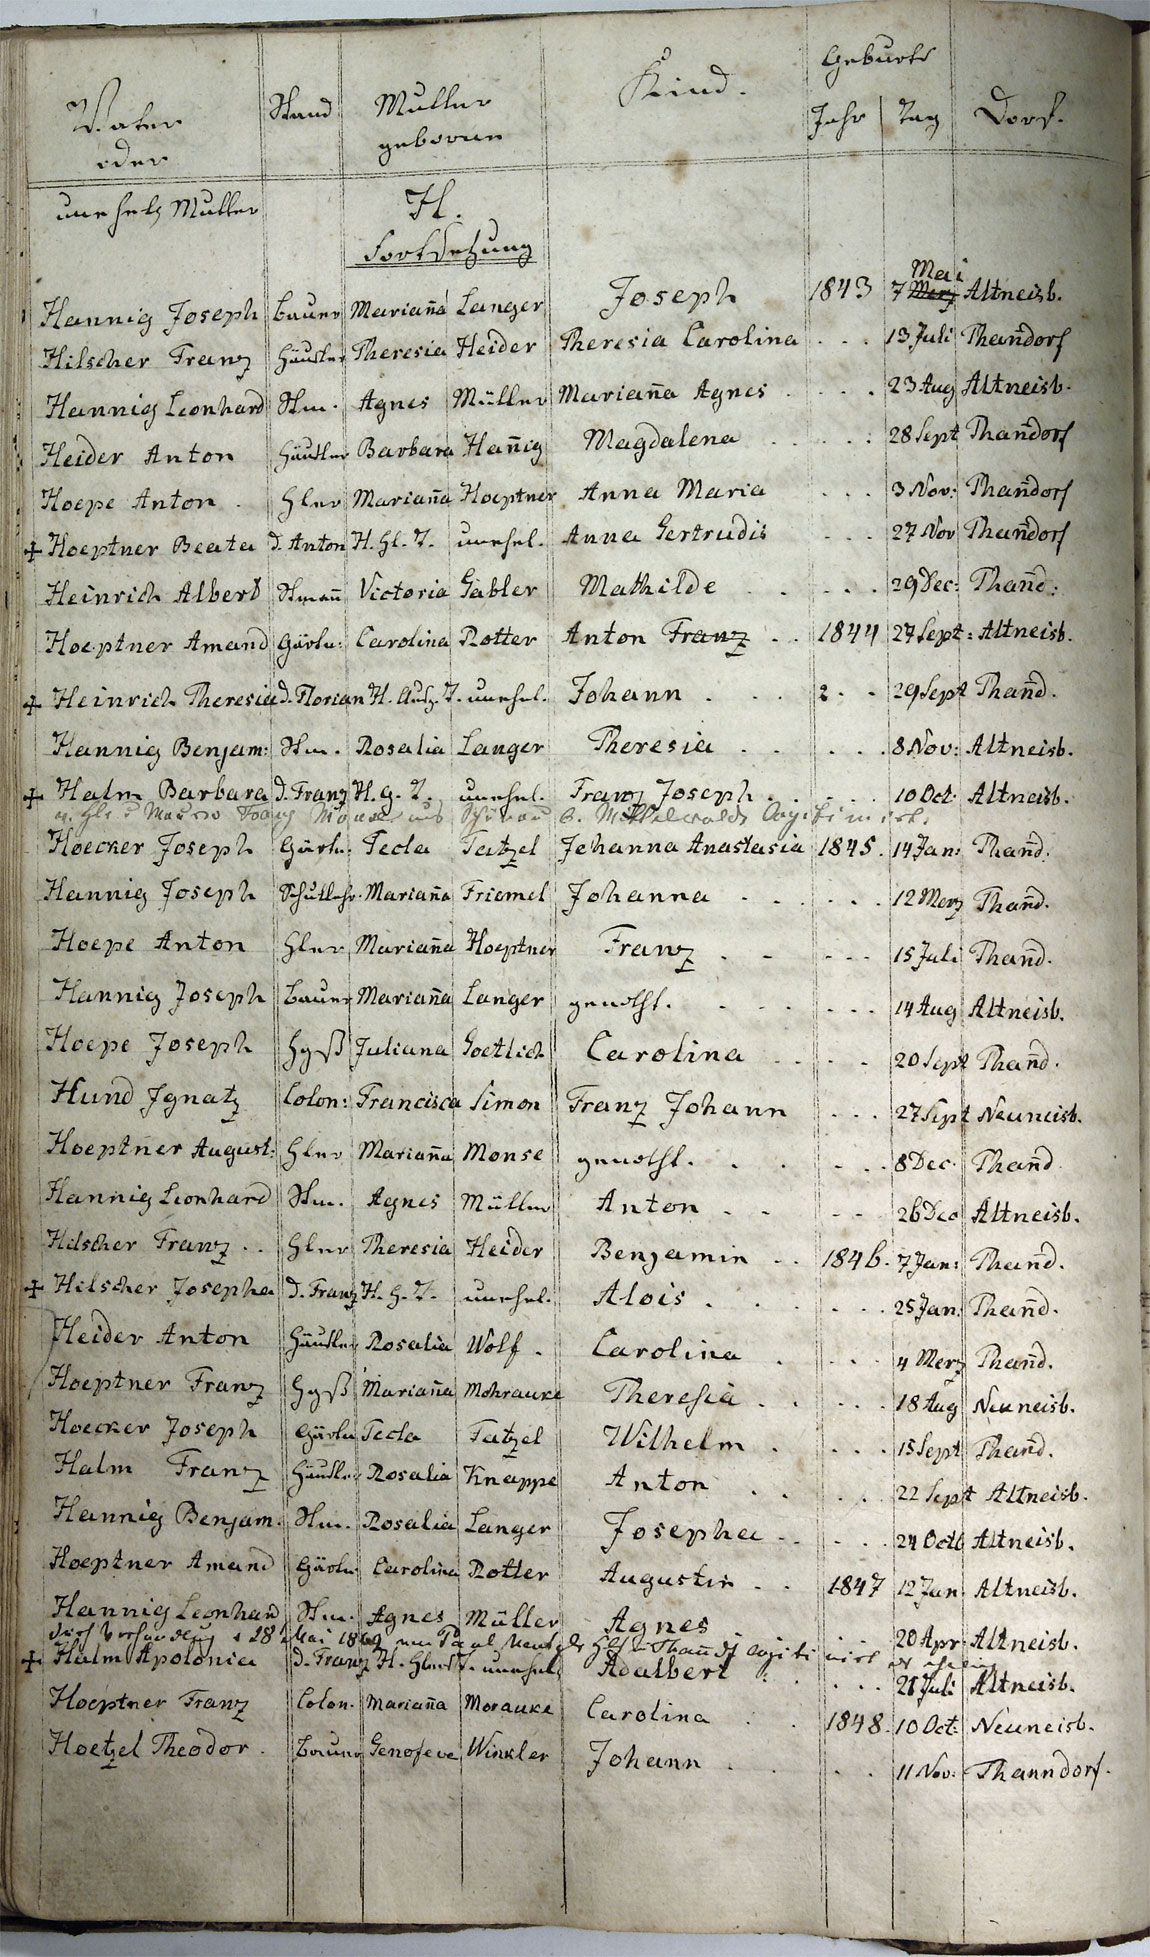 Geburts
Vater Stand Mutter Kind. Jahr Tag Dorf.
oder geboren
unehelg Mutter H.
Fortsetzung
Hannig Joseph Bauer Mariana Langer Joseph 1843 7 Mai Merz Altneisb.
Hilscher Franz Häusler Theresia Heider Theresia Carolina . . . 13 Juli Thandorf
Hannig Leonhard Stm. Agnes Müller Mariana Agnes . . . . 23 Aug Altneisb.
Heider Anton Häusler Barbara Hanig Magdalena . . . . . 28 Sept Thandorf
Hoepe Anton . Hler Mariana Hoeptner Anna Maria . . . 3 Nov: Thandorf
+ Hoeptner Beata d. Anton H. Hl. T. unehel. Anna Gertrudis . . . 27 Nov Thandorf
Heinrich Albert Stman Victoria Gabler Mathilde . . . . . 29 Dec: Thand:
Hoeptner Amand Gärtn: Carolina Rotter Anton Franz . . 1844 27 Sept: Altneisb.
+ Heinrich Theresia d. Florian H. Ausz. T. unehel. Johann . . . 2 . . 29 Sept Thand.
Hannig Benjam: Stm. Rosalia Langer Theresia . . . . . 8 Nov: Altneisb.
+ Halm Barbara d. Franz H. G. T. unehel. Franz Joseph . . . . . 10 Oct. Altneisb.
Franz aus b. Mittelwalde
Hoecker Joseph Gärtn: Tecla Tatzel Johanna Anastasia 1845. 14 Jan: Thand.
Hannig Joseph Schullehr. Mariana Friemel Johanna . . . . . 12 Merz Thand.
Hoepe Anton Hler Mariana Hoeptner Franz . . - - - 15 Juli Thand.
Hannig Joseph Bauer Mariana Langer genotht. . . . . . 14 Aug Altneisb.
Hoepe Joseph Hgß Juliana Goetlich Carolina . . . . . 20 Sept Thand.
Hund Ignatz Colon: Francisca Simon Franz Johann . . . 27 Sept Neuneisb.
Hoeptner August: Hler Mariana Monse genotht. . . . . . 8 Dec. Thand
Hannig Leonhard Stm. Agnes Müller Anton . . - - 26 Dec Altneisb.
Hilscher Franz . . Hler Theresia Heider Benjamin . . 1846. 7 Jan: Thand.
+ Hilscher Josepha d. Franz H. G. T. unehel. Alois . . . . . . 25 Jan: Thand.
Heider Anton Häusler Rosalia Wolf . Carolina . . . . 4 Merz Thand.
Hoeptner Franz Hgß Mariana Mohrauke Theresia . . . . . 18 Aug Neuneisb.
Hoecker Joseph Gärtn Tecla Tatzel Wilhelm . . . . 15 Sept Thand.
Halm Franz Häusler Rosalia Knappe Anton . . . . . 22 Sept Altneisb.
Hannig Benjam. Stm. Rosalia Langer Josepha . . . . . 24 Octb Altneisb.
Hoeptner Amand Gärtn Carolina Rotter Augustin . . 1847 12 Jan. Altneisb.
Hannig Leonhard Stm. Agnes Müller Agnes 20 Apr. Altneisb.
28 Mai Paul
+ Halm Apolonia d. Franz H. T. unehel. Adalbert . . . . . 21 Juli Altneisb.
Hoeptner Franz Colon. Mariana Morauke Carolina . . 1848. 10 Oct: Neuneisb.
Hoetzel Theodor . Bauer Genofeva Winkler Johann . . . . . 11 Nov: Thanndorf.